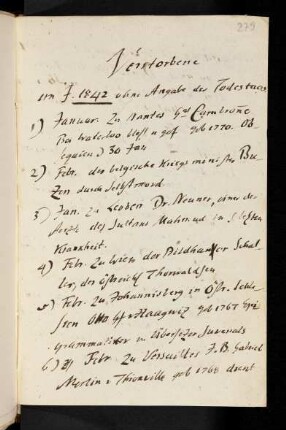 279
Verstorbene
im J. 1842 ohne Angabe des Todestages
1) Januar zu Nantes Gral Cambronne
Bei Waterloo bless u gef geb 1770. Ob
30 Jan
2) Febr. der belgische Kriegsminister Bu
zen durch Selbstmord.
3) Jan. zu Dr. Neuner, einer der
Ärzte des Sultans Mahmud in letzten
Krankheit.
4) Febr. zu Wien der Bildhauer Schal
ler, der östreich Thorwaldsen
5) Febr. zu Johannisberg in Östr. Schle
sien Otto Gf v Haugwiz geb 1767 Epi
grammatiker u Übersetzer Juvenals
6) Febr. zu Versailles J. B. Gabriel
Merlin v Thionville geb 1768